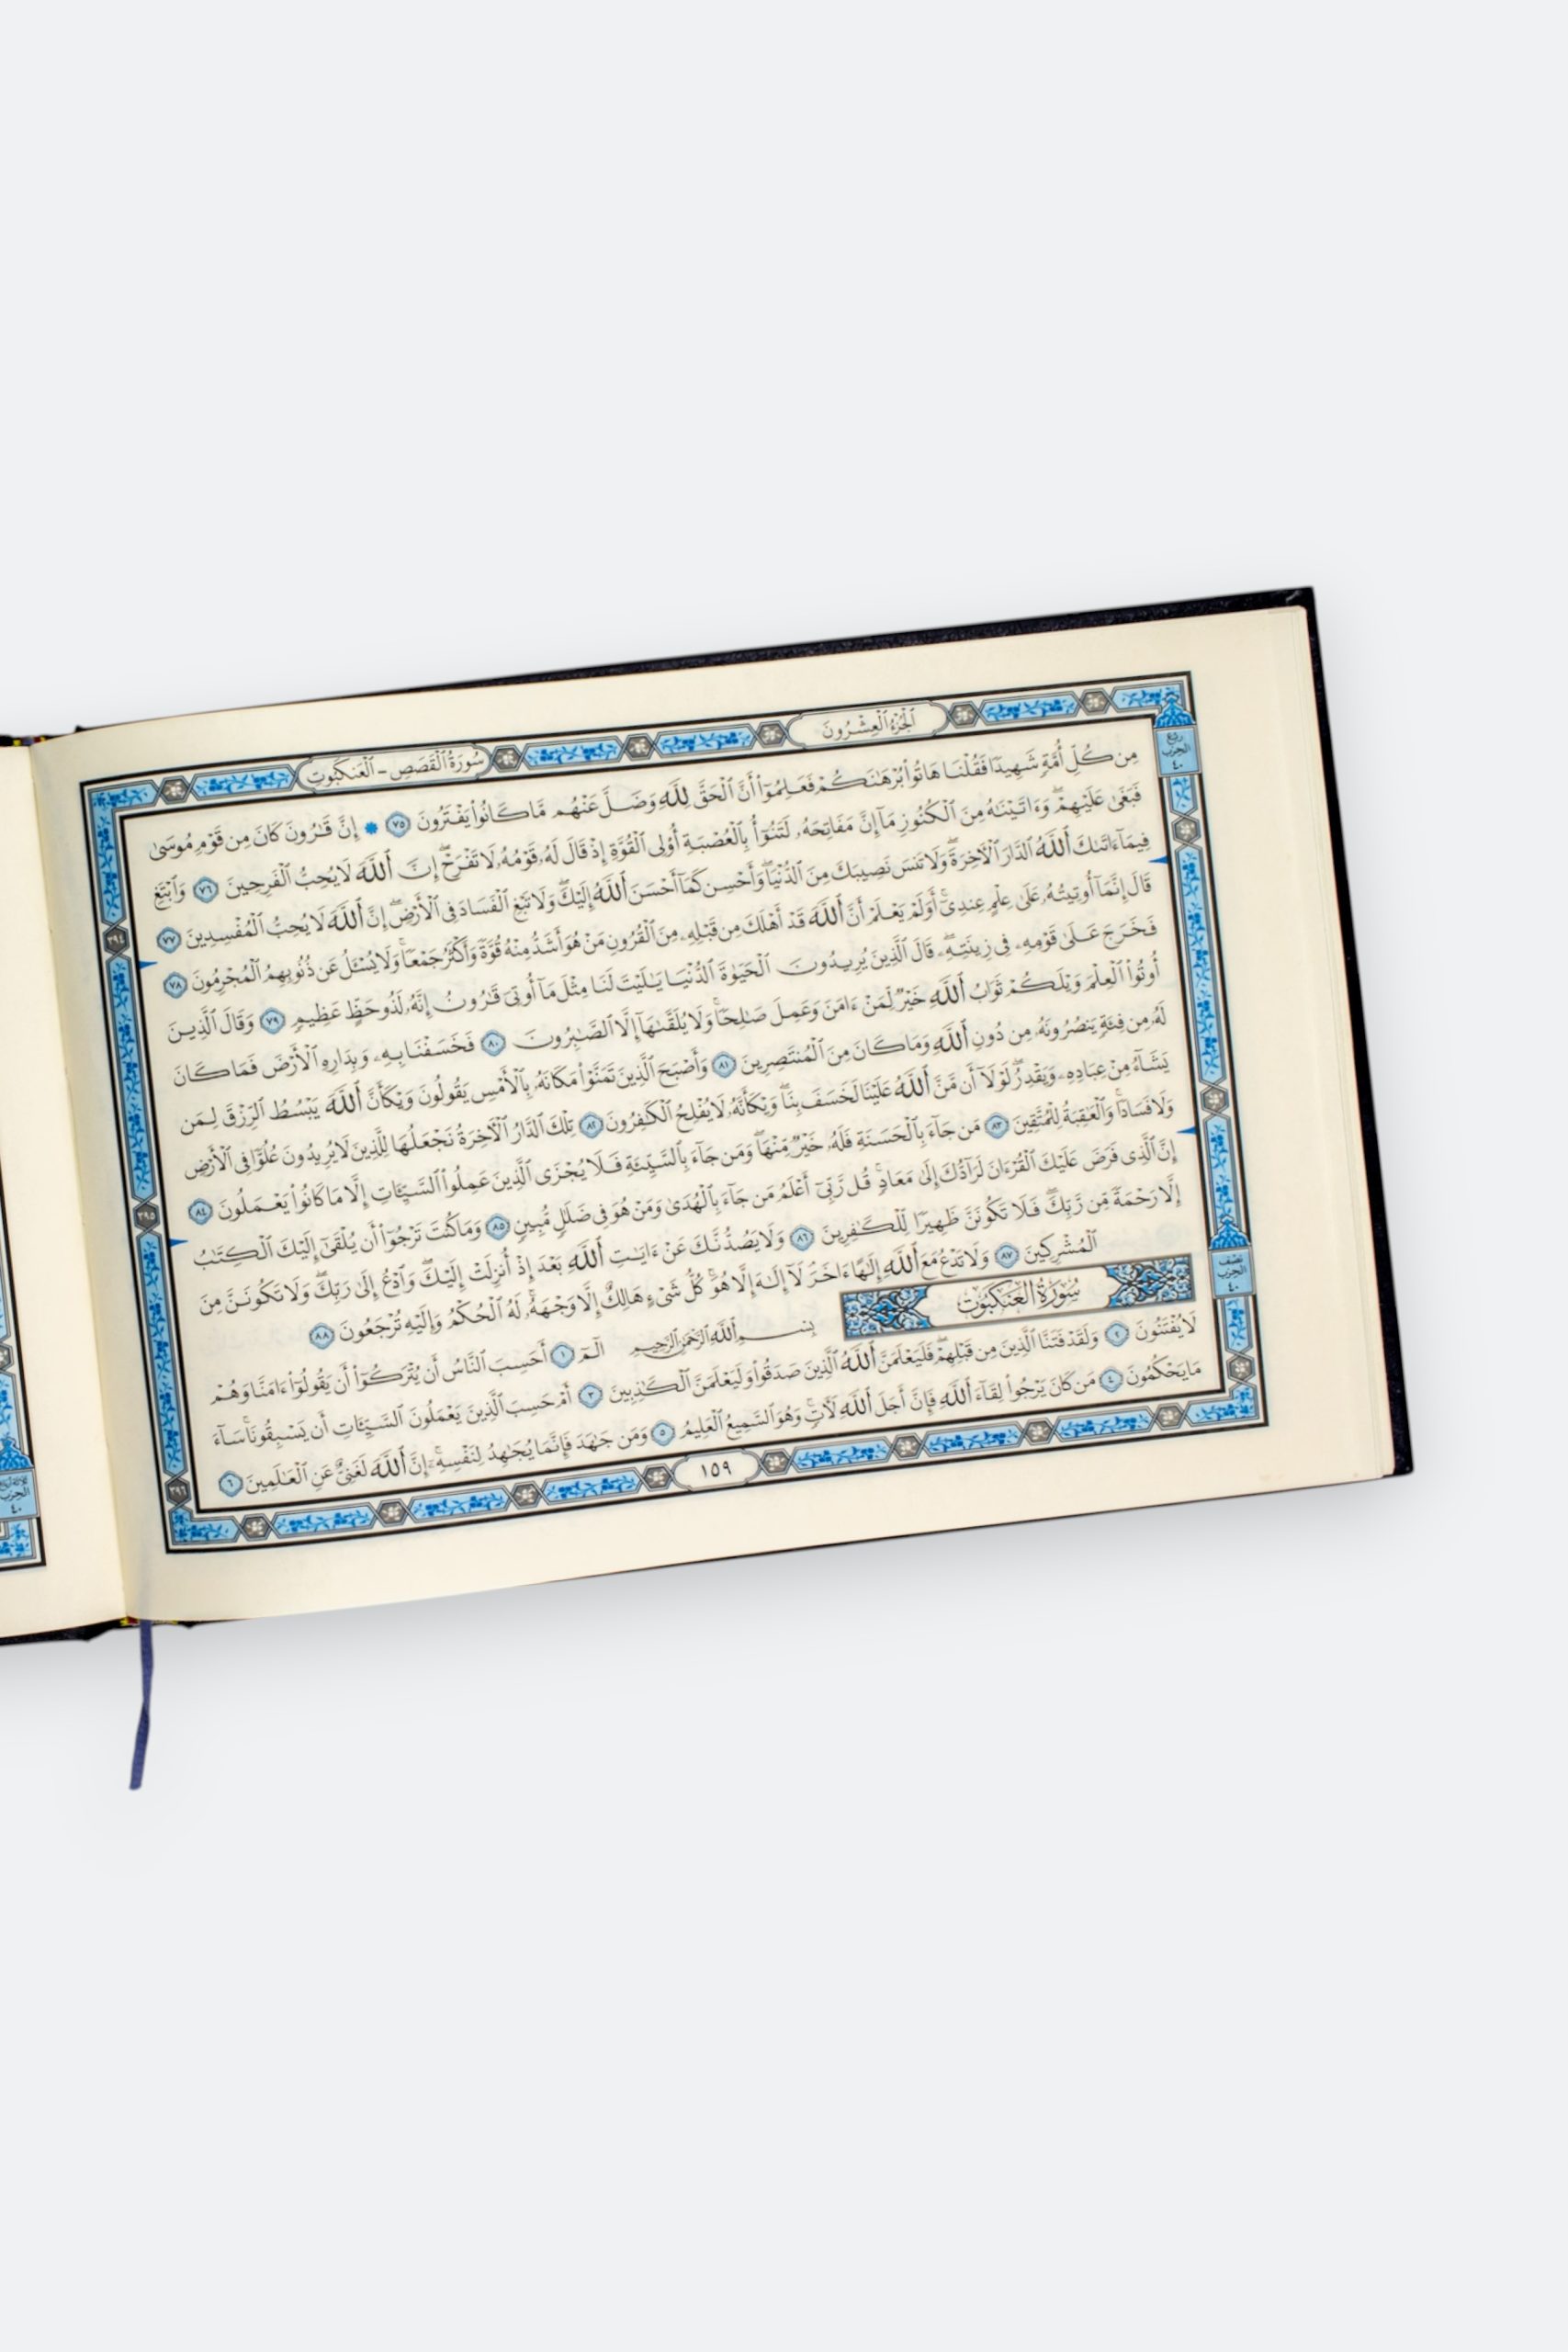 الجُزْءُ العِشْرُونَ
سُورَةُ القَصَصِ - العَنكَبُوتِ
ربع
الحزب
٤٠
مِن كُلِّ أُمَّةٍ شَهِيدًا فَقُلْنَا هَاتُوا۟ بُرْهَٰنَكُمْ فَعَلِمُوٓا۟ أَنَّ ٱلْحَقَّ لِلَّهِ وَضَلَّ عَنْهُم مَّا كَانُوا۟ يَفْتَرُونَ ٧٥ ۞ إِنَّ قَٰرُونَ كَانَ مِن قَوْمِ مُوسَىٰ
فَبَغَىٰ عَلَيْهِمْ ۖ وَءَاتَيْنَٰهُ مِنَ ٱلْكُنُوزِ مَآ إِنَّ مَفَاتِحَهُۥ لَتَنُوٓأُ بِٱلْعُصْبَةِ أُو۟لِى ٱلْقُوَّةِ إِذْ قَالَ لَهُۥ قَوْمُهُۥ لَا تَفْرَحْ ۖ إِنَّ ٱللَّهَ لَا يُحِبُّ ٱلْفَرِحِينَ ٧٦ وَٱبْتَغِ
فِيمَآ ءَاتَىٰكَ ٱللَّهُ ٱلدَّارَ ٱلْءَاخِرَةَ ۖ وَلَا تَنسَ نَصِيبَكَ مِنَ ٱلدُّنْيَا ۖ وَأَحْسِن كَمَآ أَحْسَنَ ٱللَّهُ إِلَيْكَ ۖ وَلَا تَبْغِ ٱلْفَسَادَ فِى ٱلْأَرْضِ ۖ إِنَّ ٱللَّهَ لَا يُحِبُّ ٱلْمُفْسِدِينَ ٧٧
قَالَ إِنَّمَآ أُوتِيتُهُۥ عَلَىٰ عِلْمٍ عِندِىٓ ۚ أَوَلَمْ يَعْلَمْ أَنَّ ٱللَّهَ قَدْ أَهْلَكَ مِن قَبْلِهِۦ مِنَ ٱلْقُرُونِ مَنْ هُوَ أَشَدُّ مِنْهُ قُوَّةً وَأَكْثَرُ جَمْعًا ۚ وَلَا يُسْـَٔلُ عَن ذُنُوبِهِمُ ٱلْمُجْرِمُونَ ٧٨
فَخَرَجَ عَلَىٰ قَوْمِهِۦ فِى زِينَتِهِۦ ۖ قَالَ ٱلَّذِينَ يُرِيدُونَ ٱلْحَيَوٰةَ ٱلدُّنْيَا يَٰلَيْتَ لَنَا مِثْلَ مَآ أُوتِىَ قَٰرُونُ إِنَّهُۥ لَذُو حَظٍّ عَظِيمٍ ٧٩ وَقَالَ ٱلَّذِينَ
أُوتُوا۟ ٱلْعِلْمَ وَيْلَكُمْ ثَوَابُ ٱللَّهِ خَيْرٌ لِّمَنْ ءَامَنَ وَعَمِلَ صَٰلِحًا ۚ وَلَا يُلَقَّىٰهَآ إِلَّا ٱلصَّٰبِرُونَ ٨٠ فَخَسَفْنَا بِهِۦ وَبِدَارِهِ ٱلْأَرْضَ فَمَا كَانَ
لَهُۥ مِن فِئَةٍ يَنصُرُونَهُۥ مِن دُونِ ٱللَّهِ وَمَا كَانَ مِنَ ٱلْمُنتَصِرِينَ ٨١ وَأَصْبَحَ ٱلَّذِينَ تَمَنَّوْا۟ مَكَانَهُۥ بِٱلْأَمْسِ يَقُولُونَ وَيْكَأَنَّ ٱللَّهَ يَبْسُطُ ٱلرِّزْقَ لِمَن
يَشَآءُ مِنْ عِبَادِهِۦ وَيَقْدِرُ ۖ لَوْلَآ أَن مَّنَّ ٱللَّهُ عَلَيْنَا لَخَسَفَ بِنَا ۖ وَيْكَأَنَّهُۥ لَا يُفْلِحُ ٱلْكَٰفِرُونَ ٨٢ تِلْكَ ٱلدَّارُ ٱلْءَاخِرَةُ نَجْعَلُهَا لِلَّذِينَ لَا يُرِيدُونَ عُلُوًّا فِى ٱلْأَرْضِ
وَلَا فَسَادًا ۚ وَٱلْعَٰقِبَةُ لِلْمُتَّقِينَ ٨٣ مَن جَآءَ بِٱلْحَسَنَةِ فَلَهُۥ خَيْرٌ مِّنْهَا ۖ وَمَن جَآءَ بِٱلسَّيِّئَةِ فَلَا يُجْزَى ٱلَّذِينَ عَمِلُوا۟ ٱلسَّيِّـَٔاتِ إِلَّا مَا كَانُوا۟ يَعْمَلُونَ ٨٤
إِنَّ ٱلَّذِى فَرَضَ عَلَيْكَ ٱلْقُرْءَانَ لَرَآدُّكَ إِلَىٰ مَعَادٍ ۚ قُل رَّبِّىٓ أَعْلَمُ مَن جَآءَ بِٱلْهُدَىٰ وَمَنْ هُوَ فِى ضَلَٰلٍ مُّبِينٍ ٨٥ وَمَا كُنتَ تَرْجُوٓا۟ أَن يُلْقَىٰٓ إِلَيْكَ ٱلْكِتَٰبُ
إِلَّا رَحْمَةً مِّن رَّبِّكَ ۖ فَلَا تَكُونَنَّ ظَهِيرًا لِّلْكَٰفِرِينَ ٨٦ وَلَا يَصُدُّنَّكَ عَنْ ءَايَٰتِ ٱللَّهِ بَعْدَ إِذْ أُنزِلَتْ إِلَيْكَ ۖ وَٱدْعُ إِلَىٰ رَبِّكَ ۖ وَلَا تَكُونَنَّ مِنَ
ٱلْمُشْرِكِينَ ٨٧ وَلَا تَدْعُ مَعَ ٱللَّهِ إِلَٰهًا ءَاخَرَ ۘ لَآ إِلَٰهَ إِلَّا هُوَ ۚ كُلُّ شَىْءٍ هَالِكٌ إِلَّا وَجْهَهُۥ ۚ لَهُ ٱلْحُكْمُ وَإِلَيْهِ تُرْجَعُونَ ٨٨
نصف
الحزب
٤٠
سُورَةُ العَنكَبُوتِ
بِسْمِ ٱللَّهِ ٱلرَّحْمَٰنِ ٱلرَّحِيمِ الٓمٓ ١ أَحَسِبَ ٱلنَّاسُ أَن يُتْرَكُوٓا۟ أَن يَقُولُوٓا۟ ءَامَنَّا وَهُمْ
لَا يُفْتَنُونَ ٢ وَلَقَدْ فَتَنَّا ٱلَّذِينَ مِن قَبْلِهِمْ ۖ فَلَيَعْلَمَنَّ ٱللَّهُ ٱلَّذِينَ صَدَقُوا۟ وَلَيَعْلَمَنَّ ٱلْكَٰذِبِينَ ٣ أَمْ حَسِبَ ٱلَّذِينَ يَعْمَلُونَ ٱلسَّيِّـَٔاتِ أَن يَسْبِقُونَا ۚ سَآءَ
مَا يَحْكُمُونَ ٤ مَن كَانَ يَرْجُوا۟ لِقَآءَ ٱللَّهِ فَإِنَّ أَجَلَ ٱللَّهِ لَءَاتٍ ۚ وَهُوَ ٱلسَّمِيعُ ٱلْعَلِيمُ ٥ وَمَن جَٰهَدَ فَإِنَّمَا يُجَٰهِدُ لِنَفْسِهِۦٓ ۚ إِنَّ ٱللَّهَ لَغَنِىٌّ عَنِ ٱلْعَٰلَمِينَ ٦
١٥٩
٣٩٤
٣٩٥
٣٩٦
الحزب
٤٠